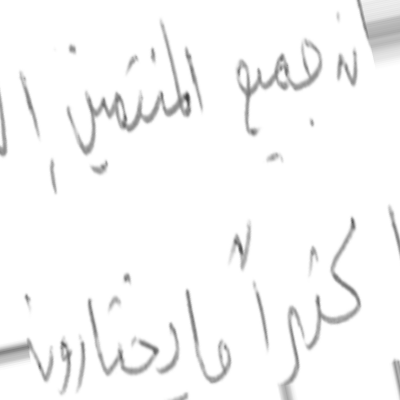 جميع المنتمين إلى
كثيراً ما يختارون